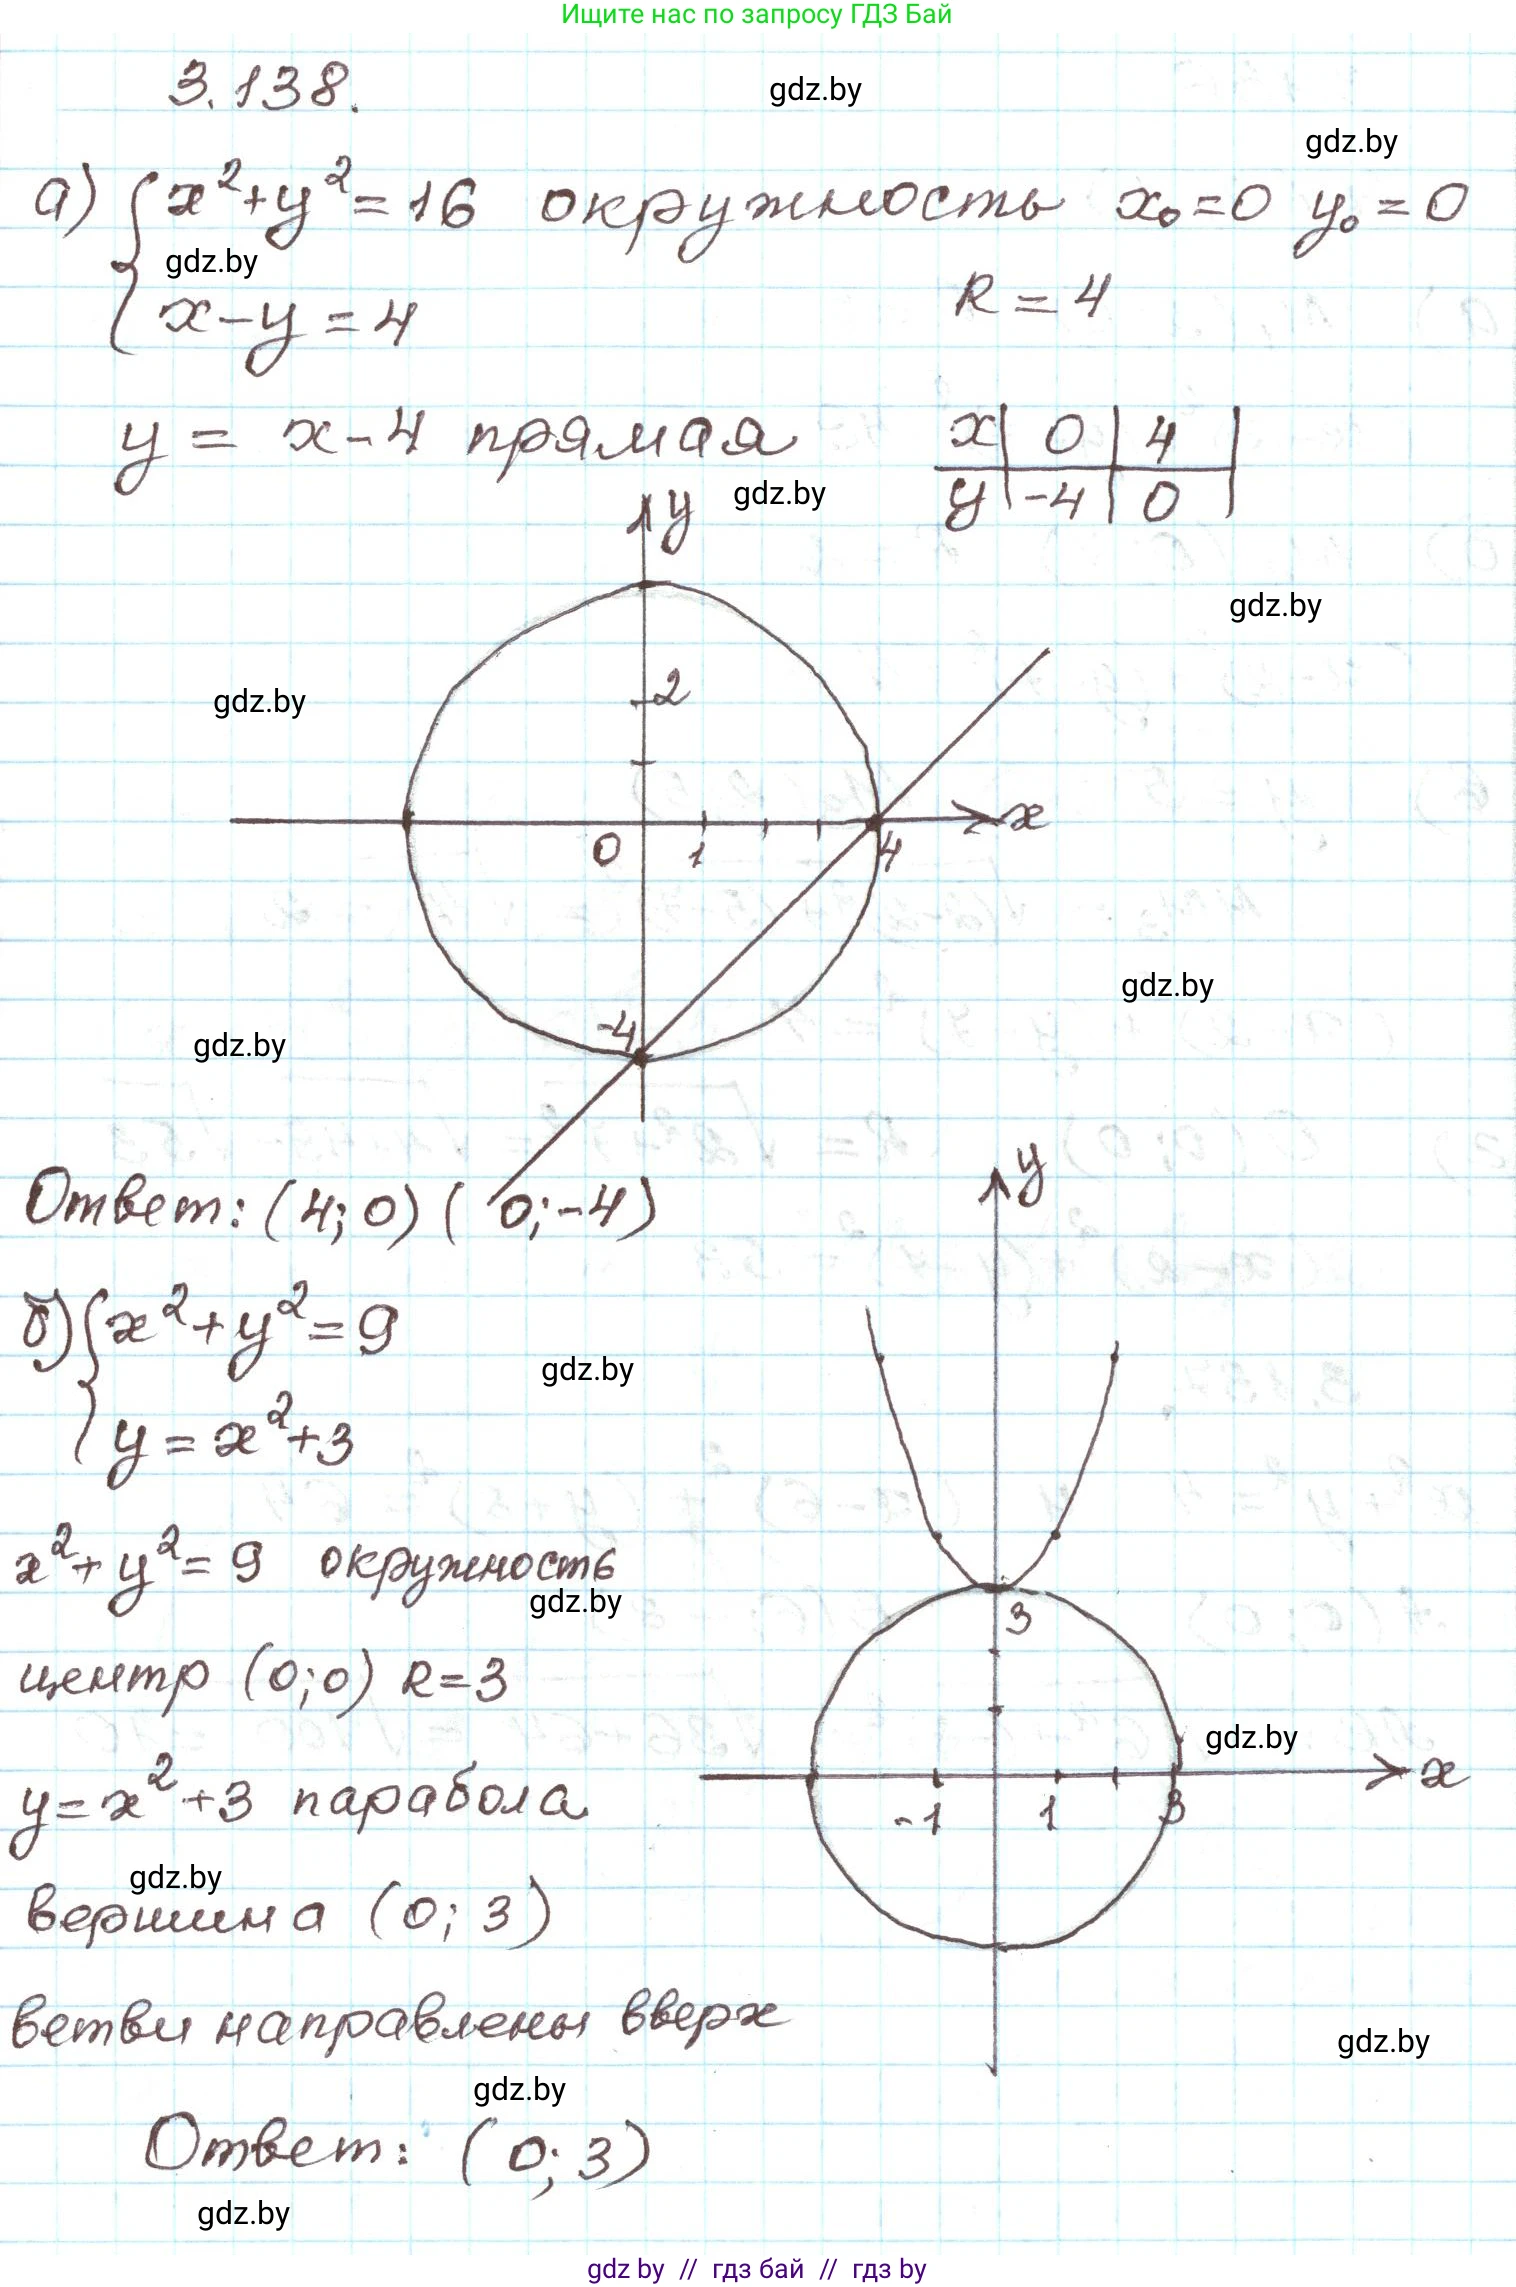 Ищите нас по запросу ГДЗ Бай
3.138.
gdz.by
gdz.by
а) { x²+y²=16 окружность x₀=0 y₀=0
gdz.by
x-y=4
R=4
y = x-4 прямая
x | 0 | 4 |
y | -4 | 0 |
gdz.by
y
gdz.by
gdz.by
2
0 1 4 x
gdz.by
gdz.by
-4
Ответ: (4;0) (0;-4)
y
б) { x²+y²=9
gdz.by
y=x²+3
x²+y²=9 окружность
gdz.by
3
центр (0;0) R=3
gdz.by
-1 1 3 x
y=x²+3 парабола
gdz.by
вершина (0;3)
ветви направлены вверх
gdz.by
gdz.by
Ответ: (0;3)
gdz.by
gdz.by // гдз бай // гдз by